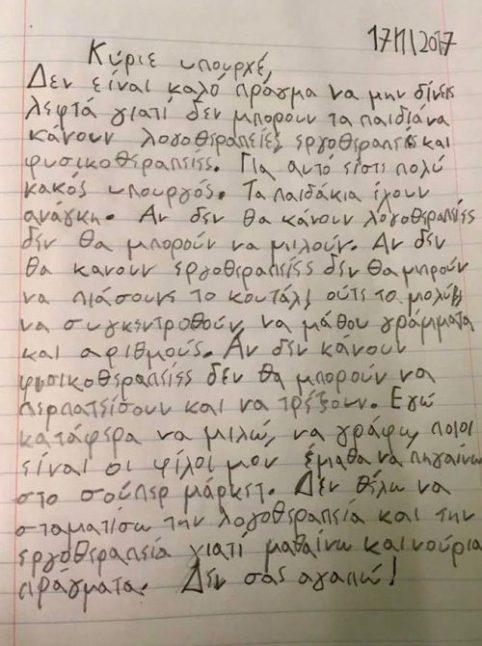 17/1/2017
Κύριε υπουρχέ,
Δεν είναι καλό πράγμα να μην δίνεις
λεφτά γιατί δεν μπορουν τα παιδιά να
κάνουν λογοθεραπείες εργοθεραπείες και
φυσικοθεραπείες. Για αυτό είστε πολύ
κακός υπουργός. Τα παιδάκια έχουν
ανάγκη. Αν δεν θα κάνουν λογοθεραπείες
δεν θα μπορούν να μιλούν. Αν δεν
θα κανουν εργοθεραπείες δεν θα μπρούν
να πιάσουνε το κουτάλι ούτε το μολύβι
να συγκεντροθούν, να μάθου γράμματα
και αριθμούς. Αν δεν κάνουν
φυσικοθέραπείες δεν θα μπορούν να
περπατείσουν και να τρέξουν. Εγώ
κατάφερα να μιλώ, να γράφω, ποιοι
είναι οι φίλοι μου έμαθα να πηγαίνω
στο σούπερ μάρκετ. Δεν θέλω να
σταματίσω την λογοθεραπεία και την
εργοθεραπεία γιατί μαθαίνω καινούρια
πράγματα. Δεν σας αγαπώ!